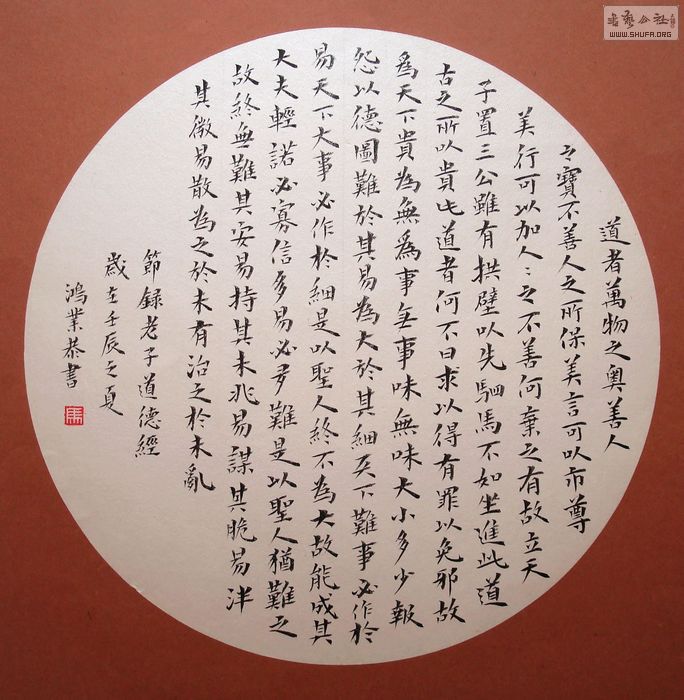 道者萬物之奥善人
之寶不善人之所保美言可以市尊
美行可以加人〻之不善何棄之有故立天
子置三公雖有拱璧以先駟馬不如坐進此道
古之所以貴此道者何不曰求以得有罪以免邪故
爲天下貴為無爲事無事味無味大小多少報
怨以德圖難於其易為大於其細天下難事必作於
易天下大事必作於細是以聖人終不為大故能成其
大夫輕諾必寡信多易必多難是以聖人猶難之
故終無難其安易持其未兆易謀其脆易泮
其微易散為之於未有治之於未亂
節録老子道德經
歲在壬辰之夏
鴻業恭書
WWW.SHUFA.ORG